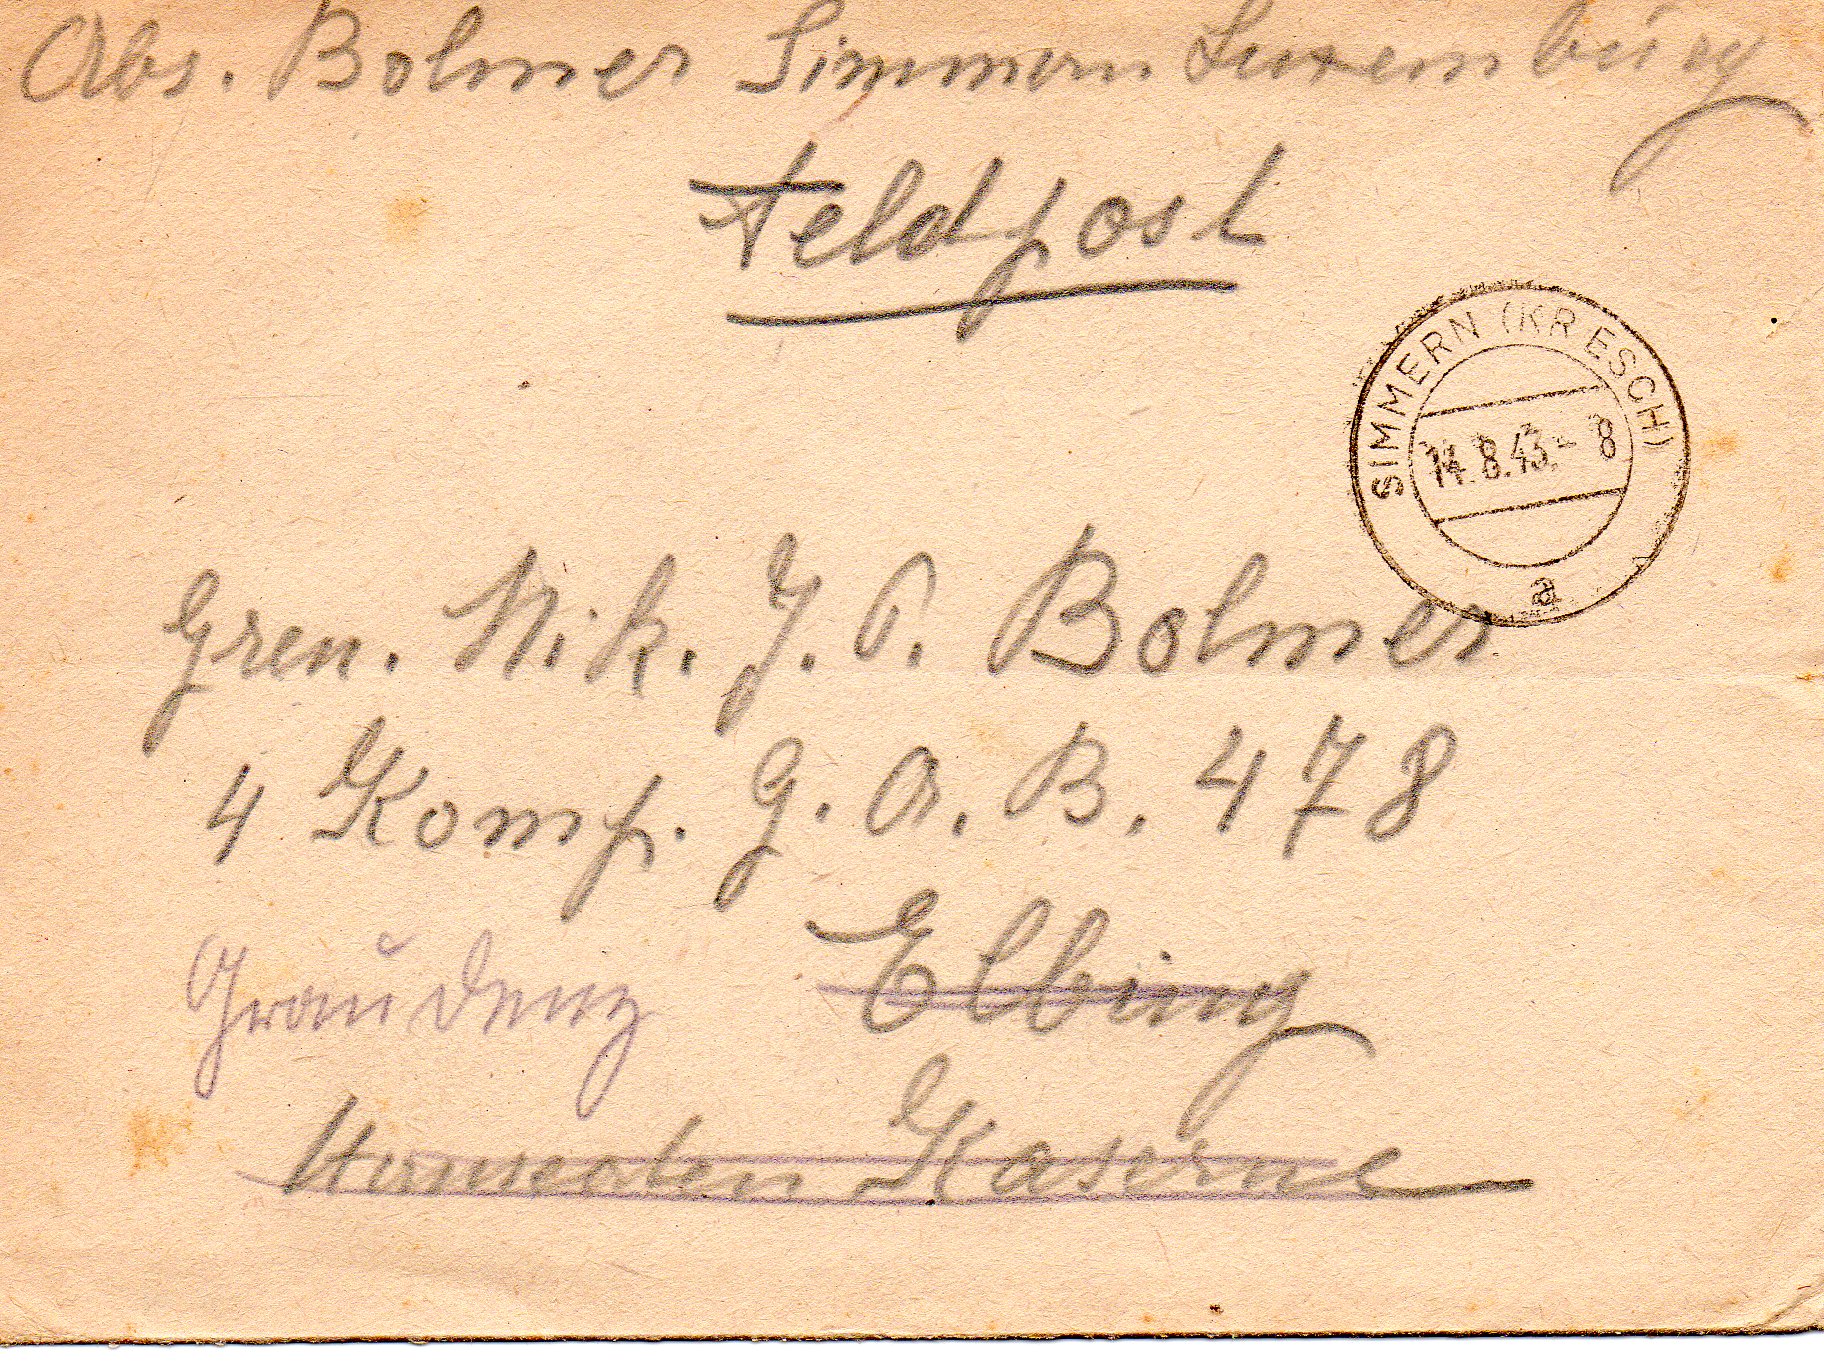 Abs. Bolmer Simmern Luxemburg
Feldpost
SIMMERN (KR ESCH)
14.8.43.- 8
a
Gren. Nik. J. P. Bolmer
4 Komp. G. A. B. 478
Elbing
Graudenz
Hanseaten Kaserne